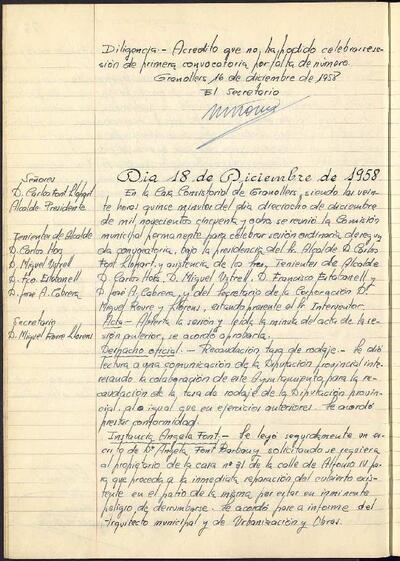 Diligencia.- Acredito que no ha podido celebrarse se-
sión de primera convocatoria por falta de número.
Granollers, 16 de diciembre de 1958
El Secretario
Dia 18 de Diciembre de 1958
Señores
D. Carlos Font Llopart
Alcalde Presidente
Tenientes de Alcalde
D. Carlos
D. Miguel
D. Fco. Estabanell
D. Jose A. Cabrera
Secretario
D. Miguel Llorens
En la Casa Consistorial de Granollers, siendo las vein-
te horas quince minutos del día dieciocho de diciembre
de mil novecientos cincuenta y ocho, se reunió la Comisión
municipal permanente para celebrar sesión ordinaria de segun-
da convocatoria, bajo la presidencia del Sr. Alcalde D. Carlos
Font Llopart, y asistencia de los Tres. Tenientes de Alcalde
D. Carlos D. Miguel D. Francisco Estabanell y
D. José A. Cabrera, y del Secretario de la Corporación Dn
Miguel y Llorens, estando presente el Sr. Interventor.
Acta.- Abierta la sesión y leída la minuta del acta de la se-
sión anterior, se acordó aprobarla.
Despacho oficial.- Recaudación tasa de rodaje.- Se dió
lectura a una comunicación de la Diputación provincial inte-
resando la colaboración de este Ayuntamiento para la re-
caudación de la tasa de rodaje de la Diputación provin-
cial, al igual que en ejercicios anteriores. Se acordó
prestar conformidad.
Instancia Angela Font.- Se leyó seguidamente un es-
crito de Dª Angela Font Barbany solicitando se requiera
al propietario de la casa nº 31 de la calle de Alfonso IV pa-
ra que proceda a la inmediata reparación del cubierto exis-
tente en el patio de la misma por estar en inminente
peligro de derrumbarse. Se acordó pase a informe del
Arquitecto municipal y de Urbanización y Obras.